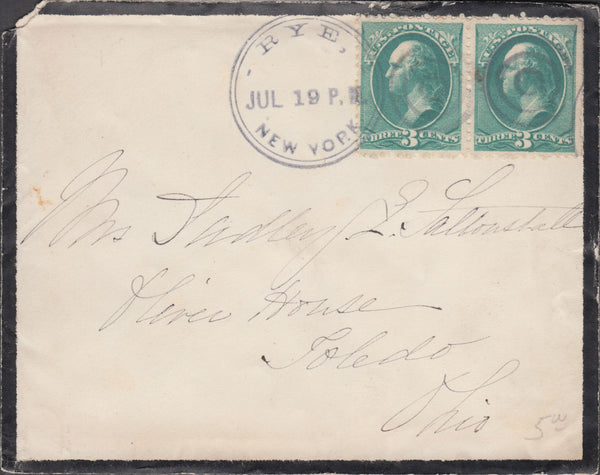 RYE,
JUL 19 P.M.
NEW YORK
U.S. POSTAGE
THREE 3 CENTS
U.S. POSTAGE
THREE 3 CENTS
Mrs Dudley E. Saltonstall
Oliver House
Toledo
Ohio
500